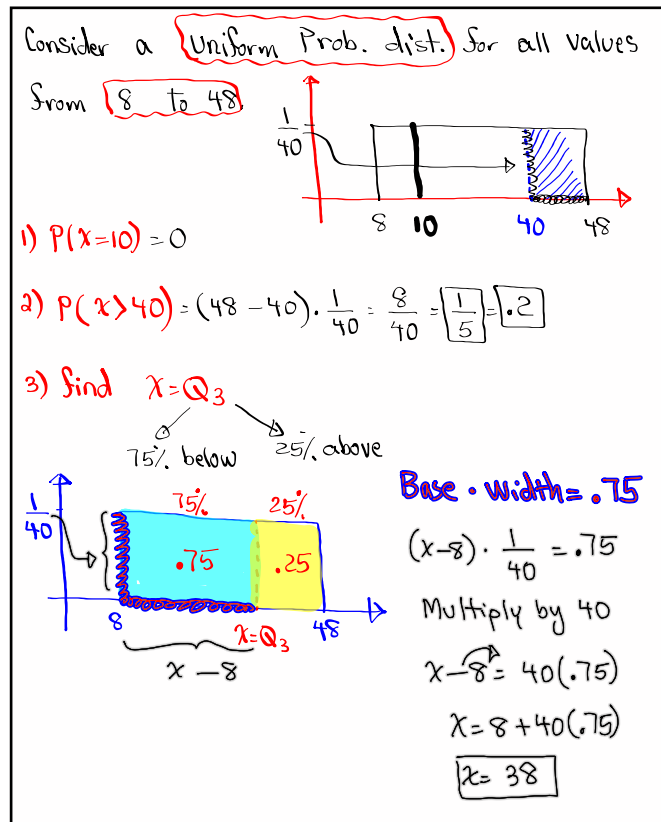 Consider a Uniform Prob. dist. for all values
from 8 to 48.
1/40
8 10 40 48
1) P(x=10) = 0
2) P(x>40) = (48-40)·1/40 = 8/40 = 1/5 = .2
3) find x=Q₃
75% below 25% above
1/40
75% 25%
.75 .25
8 x=Q₃ 48
x-8
Base · width = .75
(x-8)·1/40 = .75
Multiply by 40
x-8 = 40(.75)
x = 8+40(.75)
x = 38